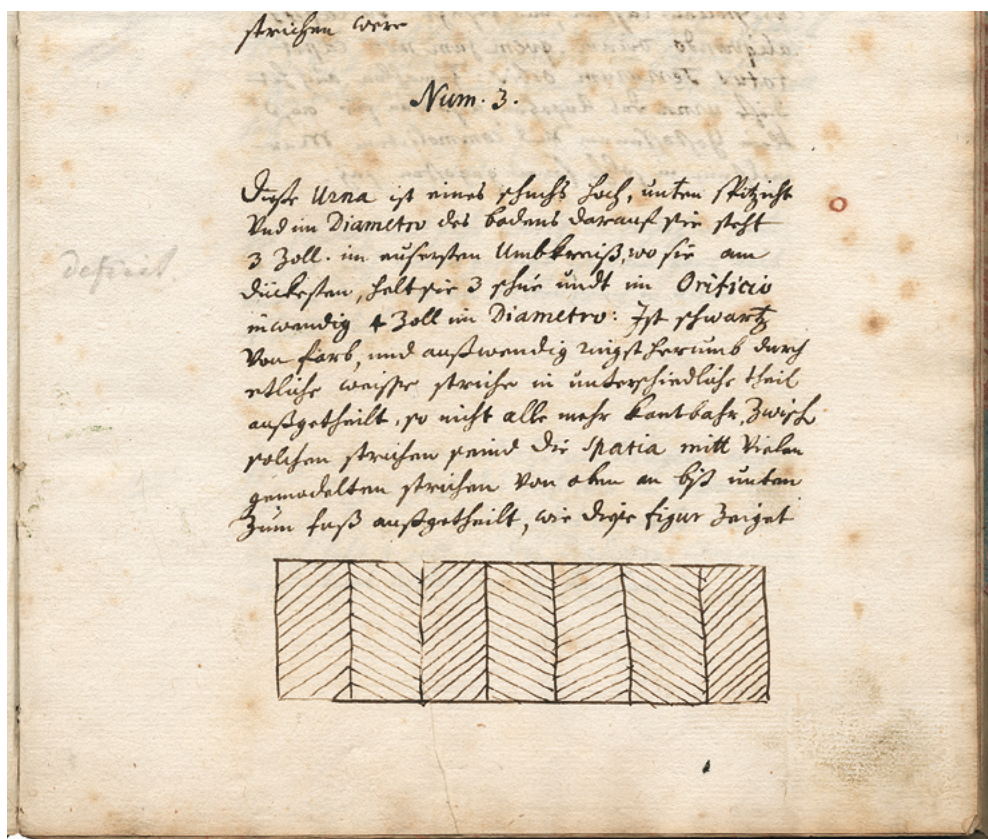 strichen were
Num. 3.
Diese Urna ist eines schuchs hoch, unten spitzicht
Vnd im Diametro des bodens darauf sie steht
3 Zoll. im eusersten Umbkreiß, wo sie am
dückesten, helt sie 3 schue undt im Orificio
inwendig 4 Zoll im Diametro: Ist schwartz
Von farb, und außwendig ringst herumb durch
etliche weisse striche in unterschiedliche theil
außgetheilt, so nicht alle mehr kantbahr, Zwisch
solchen strichen seind die spatia mitt Vielen
gemodelten strichen Von oben an biß unten
Zum fuß außgetheilt, wie diese figur Zeiget
deficit